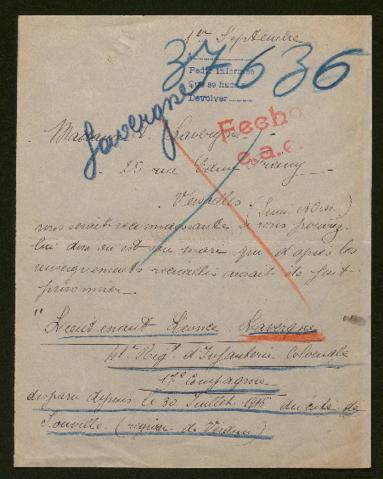 1er Septembre
37636
Pedir informes
que se hace
Devolver
Lavergne
Fecho
Madame L. Lavergne
25 rue
Versailles (Seine &Oise)
vous serait reconnaissante si vous pouviez
lui dire où est son mari qui d'après les
renseignements recueillis aurait été fait
prisonnier
"Lieutenant Lavergne
Régt d'Infanterie Coloniale
17e Compagnie
disparu depuis le 30 Juillet 1916 du côté de
Souville (région de Verdun)